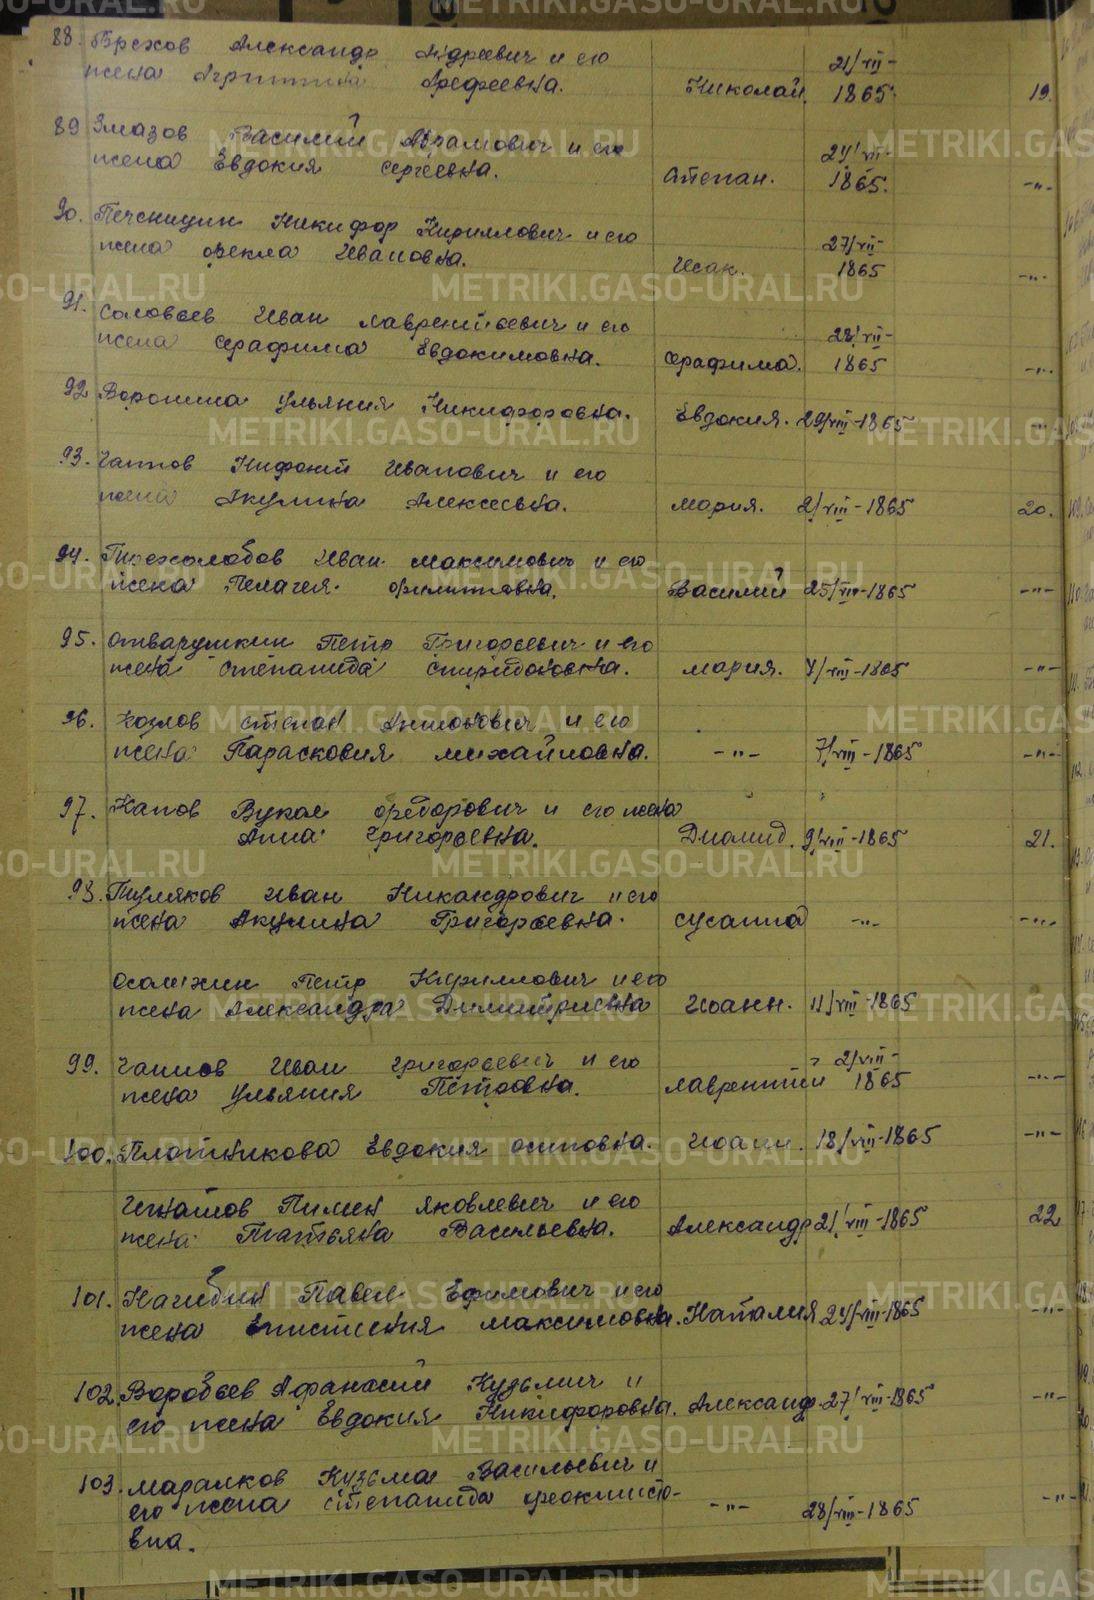 88. Брехов Александр Андреевич и его
21/VII-
жена Агриппина Арефеевна. Николай. 1865. 19.
89 Змазов Василий Абрамович и его
24/VII-
жена Евдокия Сергеевна. Степан. 1865. -"-
90. Печеницин Никифор Кириллович и его
27/VII-
жена Фекла Ивановна. Исак. 1865 -"-
91. Соловьев Иван Лаврентьевич и его
28/VII-
жена Серафима Евдокимовна. Серафима. 1865 -"-
92 Воронина Ульяния Никифоровна. Евдокия. 29/VIII-1865 -"-
93. Чаппов Нифонт Иванович и его
жена Акулина Алексеевна. Мария. 2/VIII-1865 20.
94. Пережолобов Иван Максимович и его
жена Пелагея Филипповна. Василий 25/VIII-1865 -"-
95. Отварушкин Петр Григорьевич и его
жена Степанида Спиридоновна. Мария. 4/VIII-1865 -"-
96. Козлов Степан Антонович и его
жена Парасковия Михайловна. -"- 7/VIII-1865 -"-
97. Капов Вукол Федорович и его жена
Анна Григорьевна. Диомид. 9/VIII-1865 21.
98. Пуляков Иван Никандрович и его
жена Акулина Григорьевна. Сусанна -"- -"-
Осалихин Петр Кириллович и его
жена Александра Димитриевна Иоанн. 11/VIII-1865
99. Чаппов Иван Григорьевич и его 2/VIII-
жена Ульяния Петровна. Лаврентий 1865 -"-
100. Плотникова Евдокия Осиповна. Иоанн. 18/VIII-1865 -"-
Игнатов Пимен Яковлевич и его
жена Татьяна Васильевна. Александр 21/VIII-1865 22
101. Нагибин Павел Ефимович и его
жена Епистиния Максимовна. Наталия 24/VIII-1865 -"-
102. Воробьев Афанасий Кузьмич и
его жена Евдокия Никифоровна. Александр. 27/VIII-1865 -"-
103. Маралков Кузьма Васильевич и
его жена Степанида Феоктисто- -"- 28/VIII-1865 -"-
вна.
METRIKI.GASO-URAL.RU